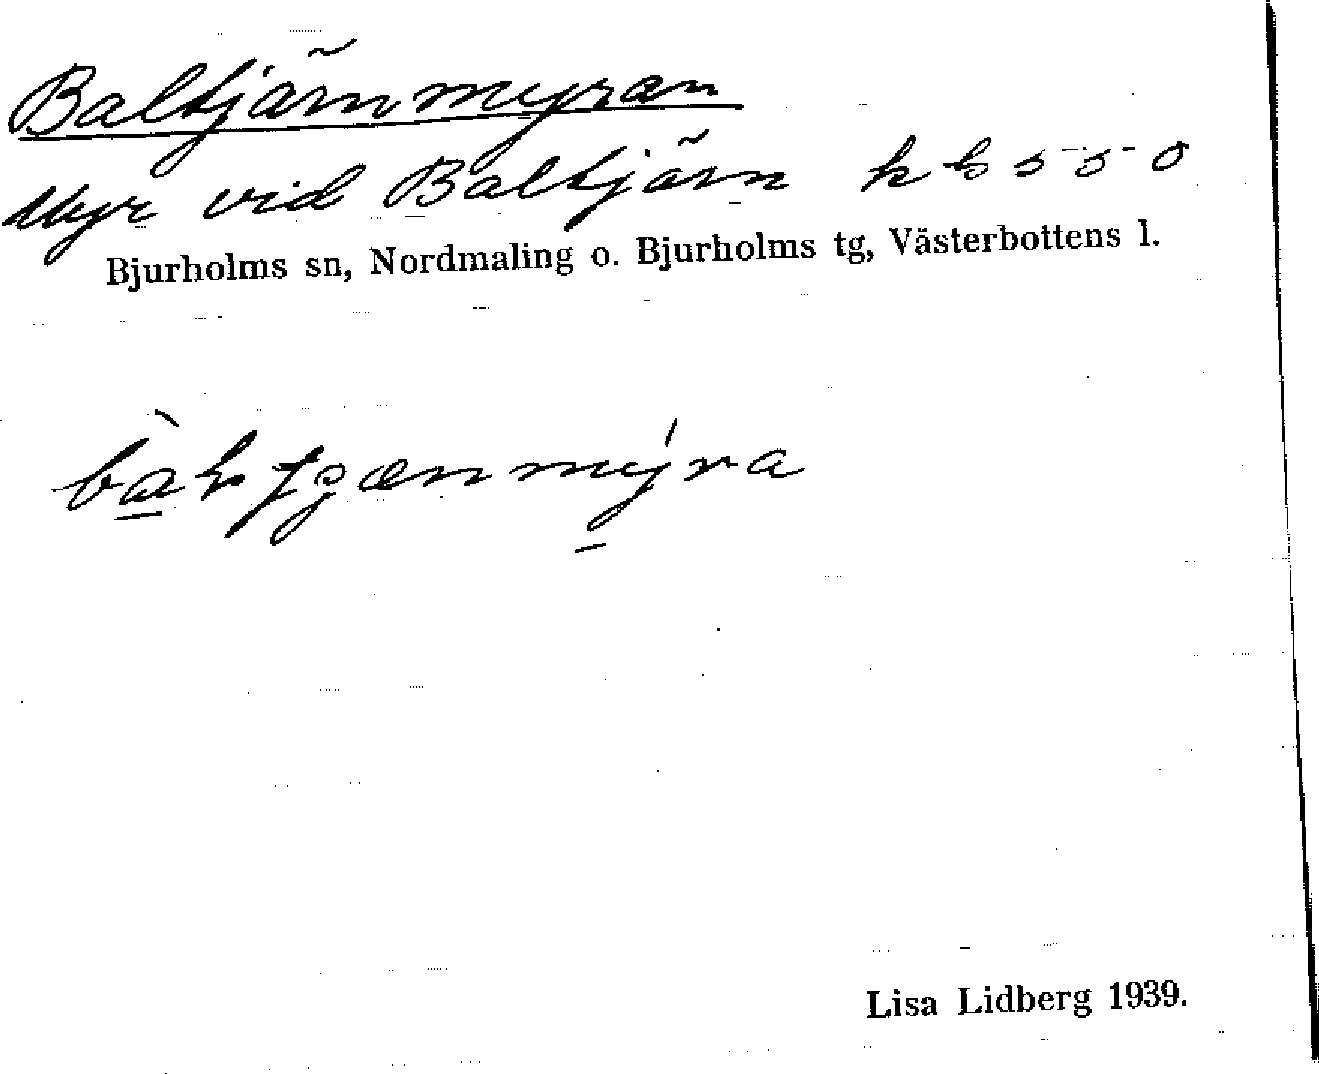 Baltjärnmyran
Myr vid Baltjärn kb 550
Bjurholms sn, Nordmaling o. Bjurholms tg, Västerbottens l.
Lisa Lidberg 1939.